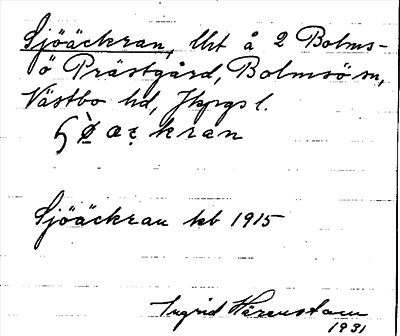 Sjöäckran, lht å 2 Bolms-
ö Prästgård, Bolmsö sn,
Västbo hd, Jkpgs l.
kran
Sjöäckran kb 1915
Ingrid Härenstam
1931